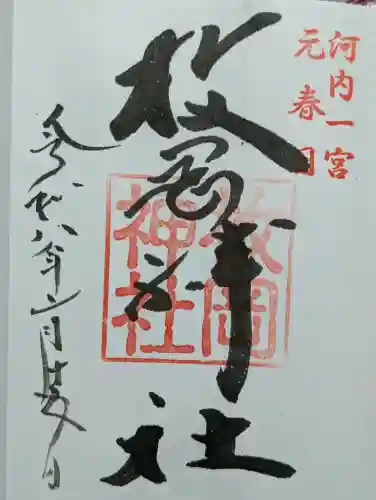 河内一宮
元春日
枚岡神社
枚岡
神社
令和八年二月廿八日